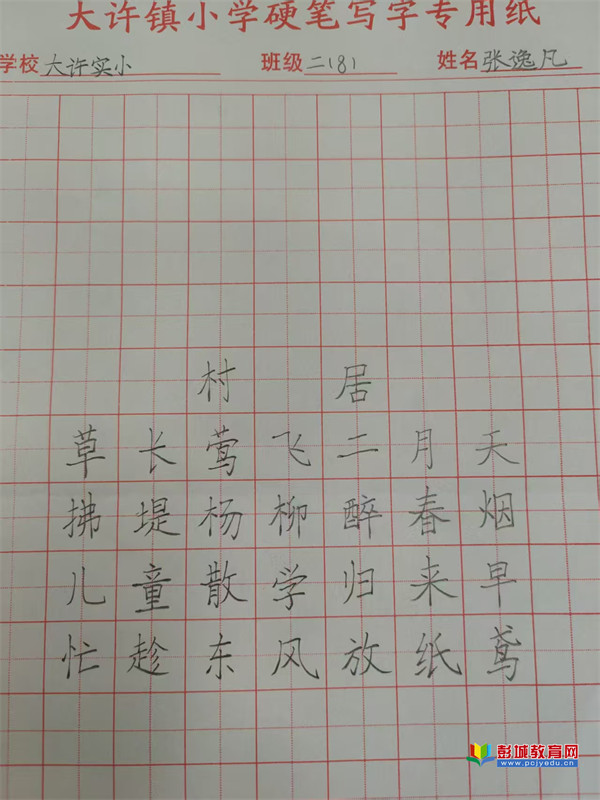 大许镇小学硬笔写字专用纸
学校 大许实小 班级 二(8) 姓名 张逸凡
村居
草长莺飞二月天
拂堤杨柳醉春烟
儿童散学归来早
忙趁东风放纸鸢
彭城教育网
www.pcjyedu.cn